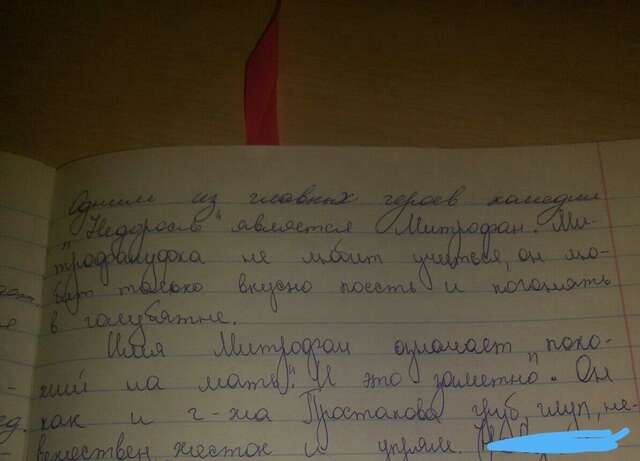 Одним из главных героев комедии
"Недоросль" является Митрофан. Ми-
трофанушка не любит учиться, он лю-
бит только вкусно поесть и погонять
в голубятне.
Имя Митрофан означает "похо-
жий на мать". И это заметно". Он
как и г-жа Простакова груб, глуп, не-
вежествен жесток и упрям.